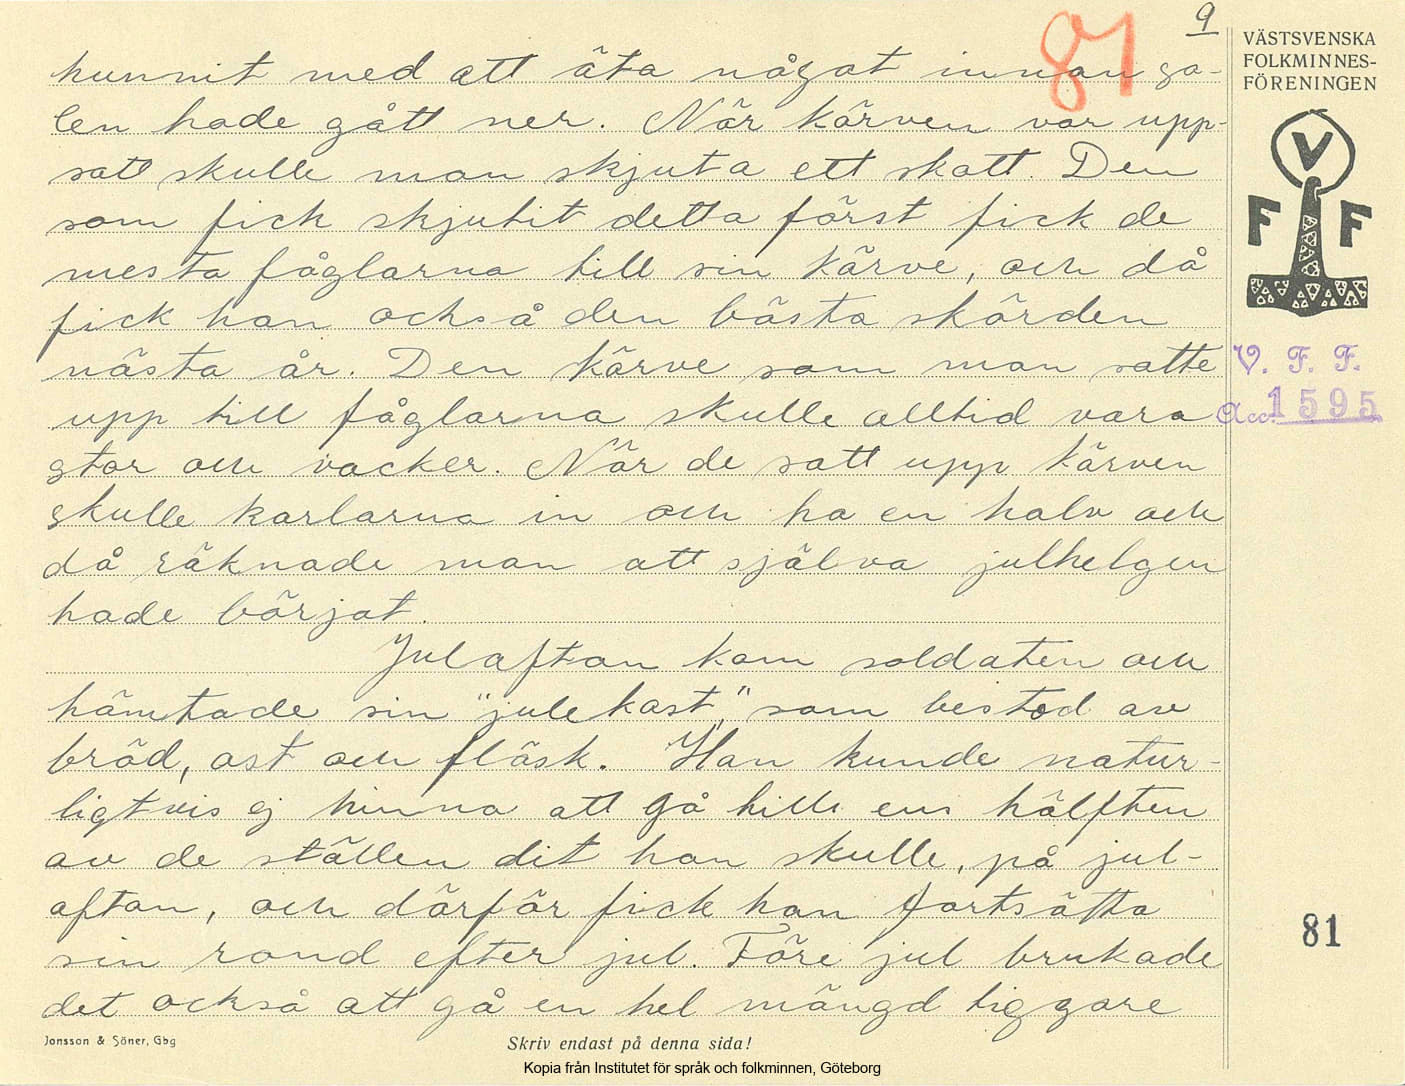 9
81
VÄSTSVENSKA
FOLKMINNES-
FÖRENINGEN
V
F F
V. F. F.
Acc. 1595
hunnit med att äta något innan so-
len hade gått ner. När kärven var upp-
satt skulle man skjuta ett skott. Den
som fick skjutit detta först fick de
mesta fåglarna till sin kärve, och då
fick han också den bästa skörden
nästa år. Den kärve som man satte
upp till fåglarna skulle alltid vara
stor och vacker. När de satt upp kärven
skulle karlarna in och ha en halv och
då räknade man att själva julhelgen
hade börjat.
Julaftan kom soldaten och
hämtade sin "julekast", som bestod av
bröd, ost och fläsk. Han kunde natur-
ligtvis ej hinna att gå till ens hälften
av de ställen dit han skulle, på jul-
aftan, och därför fick han fortsätta
sin rond efter jul. Före jul brukade
det också att gå en hel mängd tiggare
81
Jonsson & Söner, Gbg
Skriv endast på denna sida!
Kopia från Institutet för språk och folkminnen, Göteborg